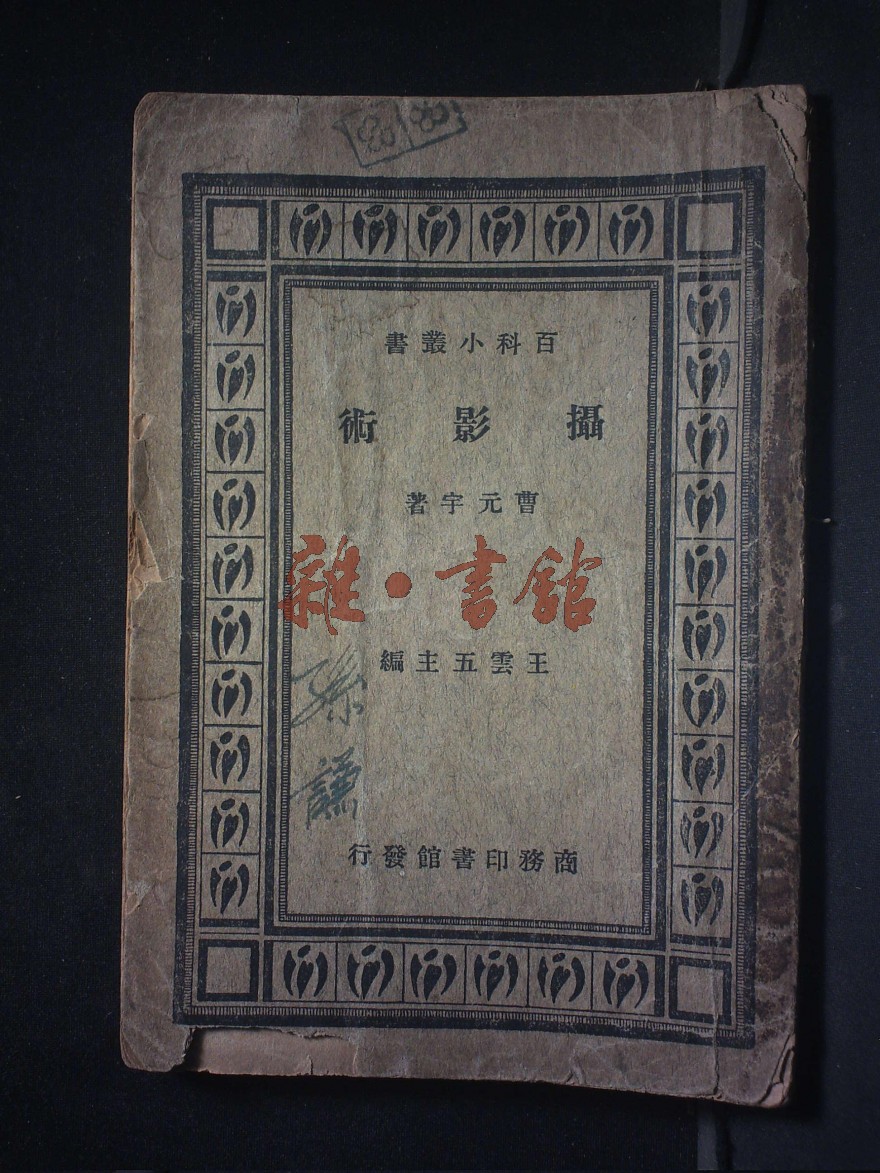 百科小叢書
攝影術
曹元宇著
雜·書館
王雲五主編
孫謙
商務印書館發行